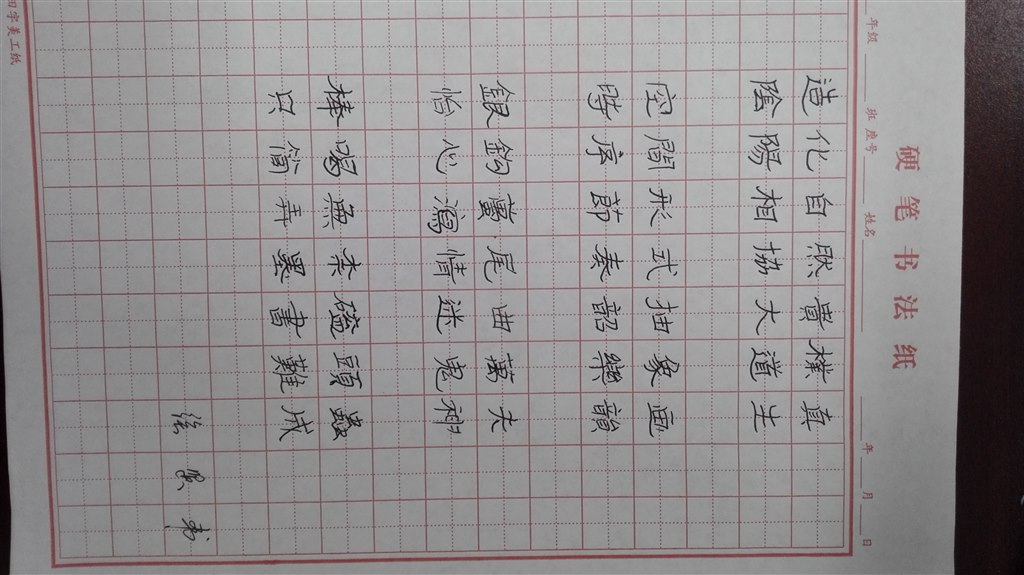 硬笔书法纸
年级 班 座号 姓名 年 月 日
造化自然貴樸真
陰陽相協大道生
空間形式抽象画
時序節奏韶樂韻
銀鉤蠆尾曲萬夫
怡心瀉情迷鬼神
棒喝無柰磕頭蟲
只簡弄墨書難成
書
田字美工纸